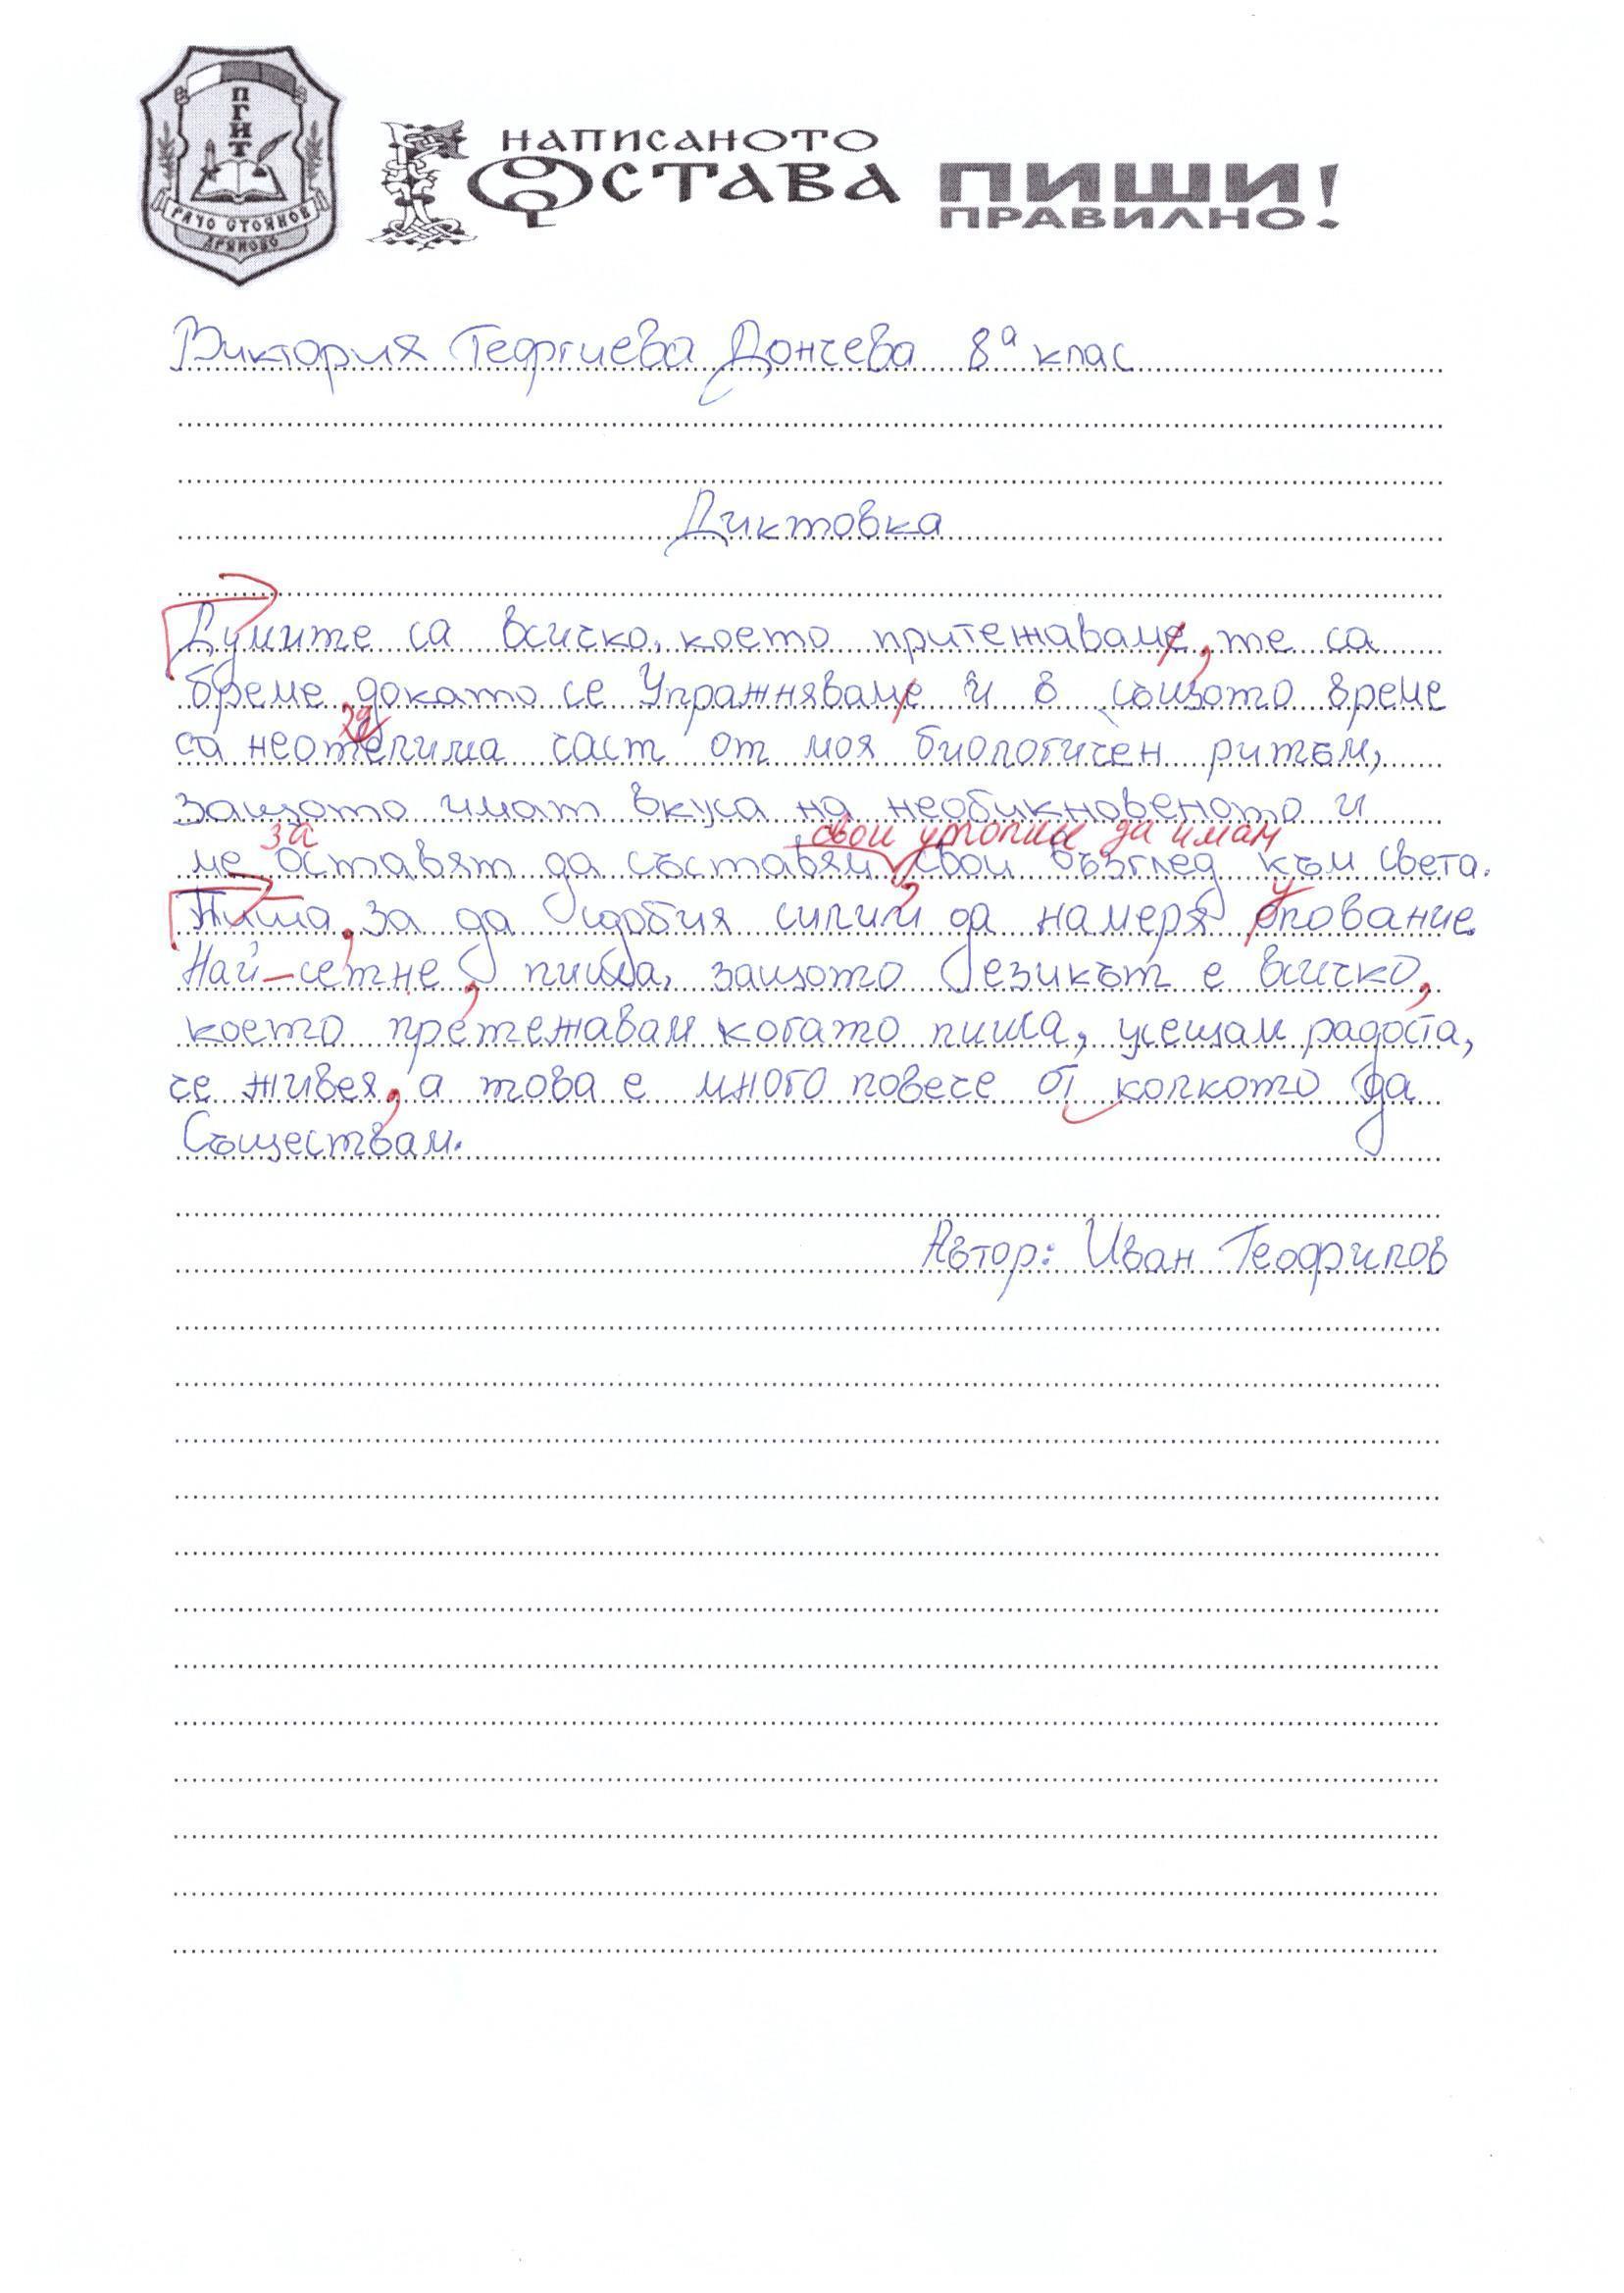 ПГИТ
РАЧО СТОЯНОВ
ДРЯНОВО
НАПИСАНОТО
ОСТАВА
ПИШИ
ПРАВИЛНО!
Виктория Георгиева Дончева 8а клас
Диктовка
Думите са всичко, което притежаваме, те са
бреме докато се Упражняваме и в същото време
са неотелима част от моя биологичен ритъм,
защото имат вкуса на необикновеното и
за свои утопии да имам
ме оставят да съставям свои възглед към света.
Пиша, за да сдобия сили и да намеря опование.
Най-сетне, пиша, защото езикът е всичко,
което претежавам когато пиша, усещам радоста,
че живея, а това е много повече от колкото да
Съществам.
Автор: Иван Теофилов